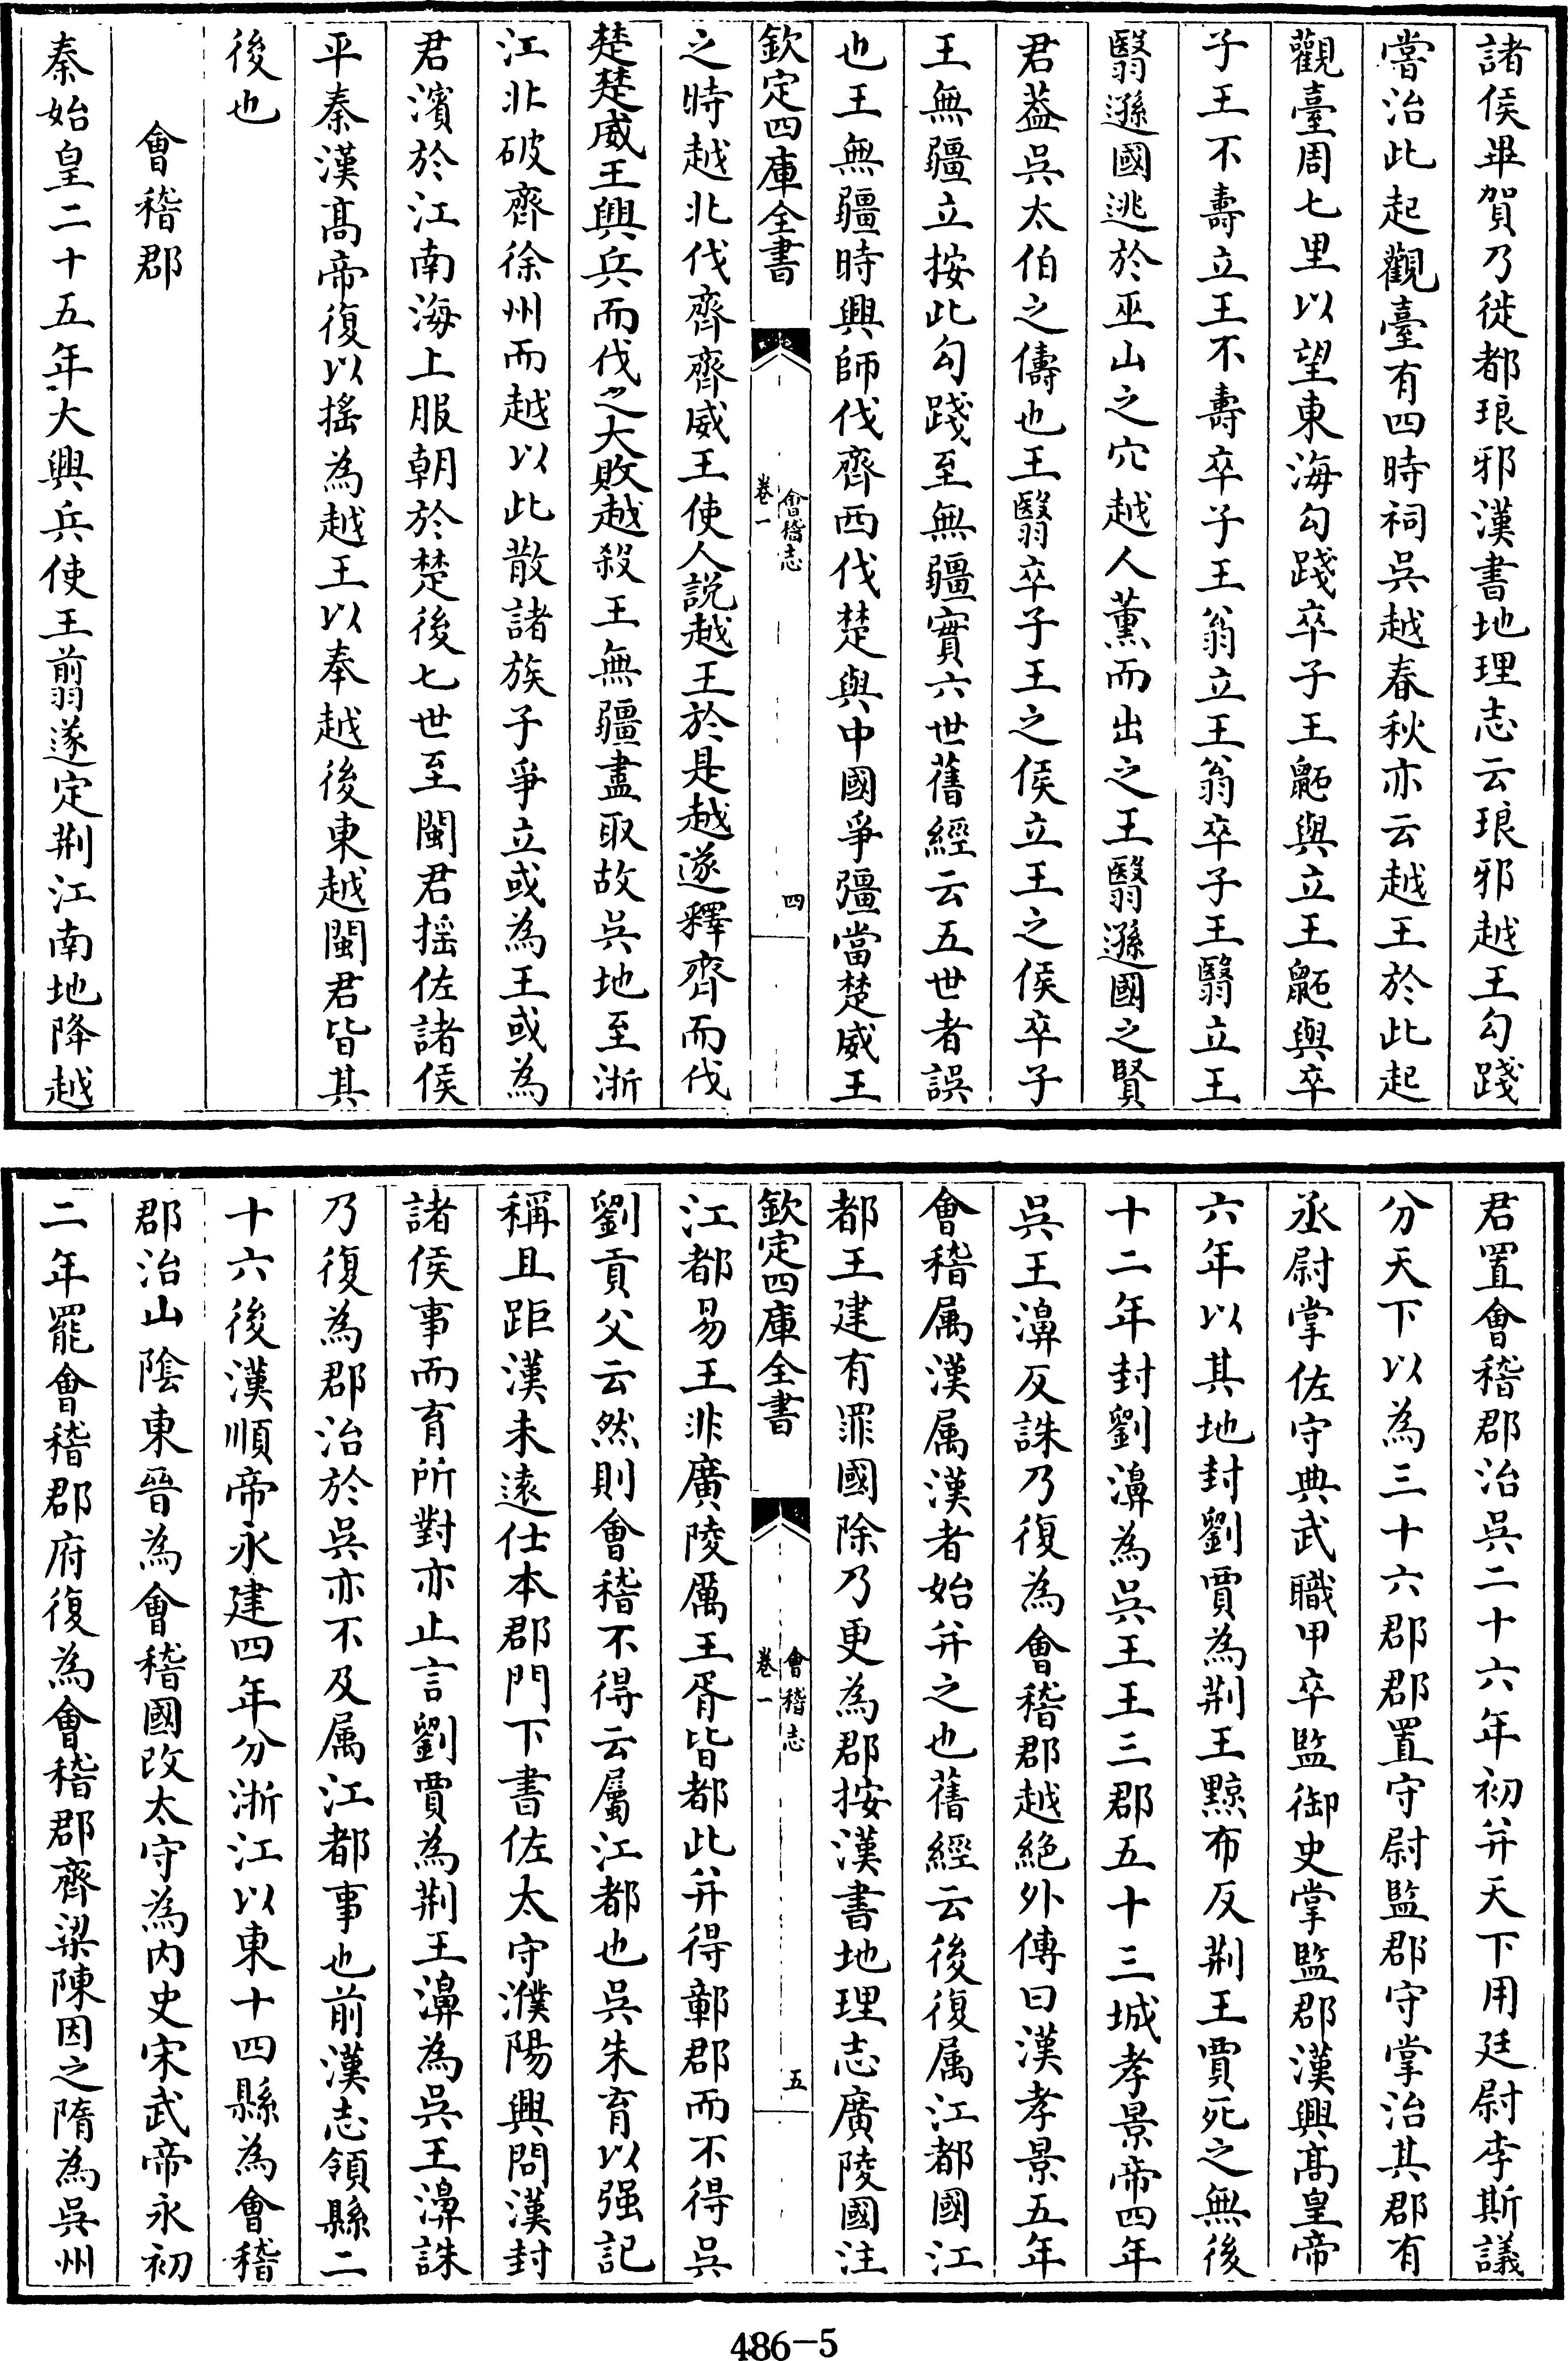 諸侯畢賀乃徙都琅邪漢書地理志云琅邪越王勾踐
嘗治此起觀臺有四時祠吳越春秋亦云越王於此起
觀臺周七里以望東海勾踐卒子王鼫與立王鼫與卒
子王不壽立王不壽卒子王翁立王翁卒子王翳立王
翳遜國逃於巫山之穴越人薫而出之王翳遜國之賢
君葢吳太伯之儔也王翳卒子王之侯立王之侯卒子
王無疆立按此勾踐至無疆實六世舊經云五世者誤
也王無疆時興師伐齊西伐楚與中國爭彊當楚威王
欽定四庫全書
會稽志
卷一
四
之時越北伐齊齊威王使人説越王於是越遂釋齊而伐
楚楚威王興兵而伐之大敗越殺王無疆盡取故吳地至浙
江北破齊徐州而越以此散諸族子爭立或為王或為
君濱於江南海上服朝於楚後七世至閩君揺佐諸侯
平秦漢髙帝復以揺為越王以奉越後東越閩君皆其
後也
會稽郡
秦始皇二十五年大興兵使王翦遂定荆江南地降越
君置會稽郡治吳二十六年初并天下用廷尉李斯議
分天下以為三十六郡郡置守尉監郡守掌治其郡有
丞尉掌佐守典武職甲卒監御史掌監郡漢興髙皇帝
六年以其地封劉賈為荆王黥布反荆王賈死之無後
十二年封劉濞為吳王王三郡五十三城孝景帝四年
吳王濞反誅乃復為會稽郡越絶外傳曰漢孝景五年
會稽属漢属漢者始并之也舊經云後復属江都國江
都王建有罪國除乃更為郡按漢書地理志廣陵國注
欽定四庫全書
會稽志
卷一
五
江都易王非廣陵厲王胥皆都此并得鄣郡而不得吳
劉貢父云然則會稽不得云屬江都也吳朱育以强記
稱且距漢未遠仕本郡門下書佐太守濮陽興問漢封
諸侯事而育所對亦止言劉賈為荆王濞為吳王濞誅
乃復為郡治於吳亦不及属江都事也前漢志領縣二
十六後漢順帝永建四年分浙江以東十四縣為會稽
郡治山陰東晉為會稽國改太守為内史宋武帝永初
二年罷會稽郡府復為會稽郡齊梁陳因之隋為吳州
486-5